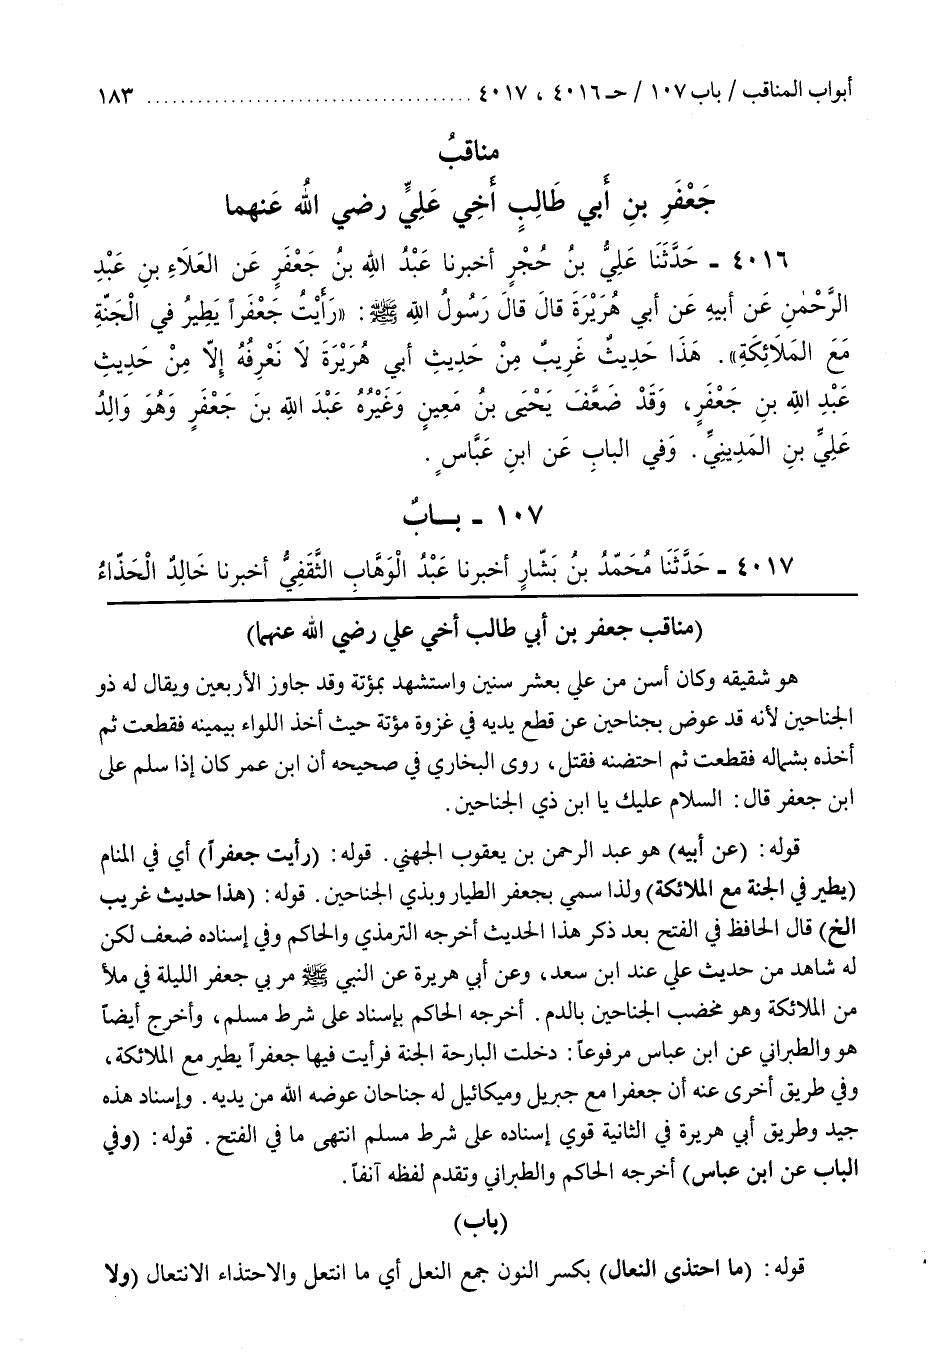 أبواب المناقب / باب ١٠٧ / حـ ٤٠١٦ ، ٤٠١٧ ....................................... ١٨٣
مناقبُ
جَعْفَرِ بنِ أَبي طَالِبٍ أَخِي عَلِيٍّ رضي اللهُ عَنهما
٤٠١٦ ـ حَدَّثَنَا عَلِيُّ بنُ حُجْرٍ أخبرنا عَبْدُ اللهِ بنُ جَعْفَرٍ عَنِ العَلَاءِ بنِ عَبْدِ
الرَّحْمٰنِ عَن أبيهِ عَن أبي هُرَيْرَةَ قالَ قالَ رَسُولُ اللهِ ﷺ: «رَأَيْتُ جَعْفَراً يَطِيرُ في الْجَنَّةِ
مَعَ المَلَائِكَةِ». هَذَا حَدِيثٌ غَرِيبٌ مِنْ حَدِيثِ أبي هُرَيْرَةَ لَا نَعْرِفُهُ إِلاّ مِنْ حَدِيثِ
عَبْدِ اللهِ بنِ جَعْفَرٍ، وَقَدْ ضَعَّفَ يَحْيَى بنُ مَعِينٍ وَغَيْرُهُ عَبْدَ اللهِ بنَ جَعْفَرٍ وَهُوَ وَالِدُ
عَلِيِّ بنِ المَدِينِيِّ. وَفي البابِ عَن ابنِ عَبَّاسٍ.
١٠٧ ـ بــابٌ
٤٠١٧ ـ حَدَّثَنَا مُحَمّدُ بنُ بَشّارٍ أخبرنا عَبْدُ الْوَهَّابِ الثَّقَفِيُّ أخبرنا خَالِدٌ الْحَذّاءُ
(مناقب جعفر بن أبي طالب أخي علي رضي الله عنهما)
هو شقيقه وكان أسن من علي بعشر سنين واستشهد بمؤتة وقد جاوز الأربعين ويقال له ذو
الجناحين لأنه قد عوض بجناحين عن قطع يديه في غزوة مؤتة حيث أخذ اللواء بيمينه فقطعت ثم
أخذه بشماله فقطعت ثم احتضنه فقتل، روى البخاري في صحيحه أن ابن عمر كان إذا سلم على
ابن جعفر قال: السلام عليك يا ابن ذي الجناحين.
قوله: (عن أبيه) هو عبد الرحمن بن يعقوب الجهني. قوله: (رأيت جعفراً) أي في المنام
(يطير في الجنة مع الملائكة) ولذا سمي بجعفر الطيار وبذي الجناحين. قوله: (هذا حديث غريب
الخ) قال الحافظ في الفتح بعد ذكر هذا الحديث أخرجه الترمذي والحاكم وفي إسناده ضعف لكن
له شاهد من حديث علي عند ابن سعد، وعن أبي هريرة عن النبي ﷺ مر بي جعفر الليلة في ملأ
من الملائكة وهو مخضب الجناحين بالدم. أخرجه الحاكم بإسناد على شرط مسلم، وأخرج أيضاً
هو والطبراني عن ابن عباس مرفوعاً: دخلت البارحة الجنة فرأيت فيها جعفراً يطير مع الملائكة،
وفي طريق أخرى عنه أن جعفرا مع جبريل وميكائيل له جناحان عوضه الله من يديه. وإسناد هذه
جيد وطريق أبي هريرة في الثانية قوي إسناده على شرط مسلم انتهى ما في الفتح. قوله: (وفي
الباب عن ابن عباس) أخرجه الحاكم والطبراني وتقدم لفظه آنفاً.
(باب)
قوله: (ما احتذى النعال) بكسر النون جمع النعل أي ما انتعل والاحتذاء الانتعال (ولا